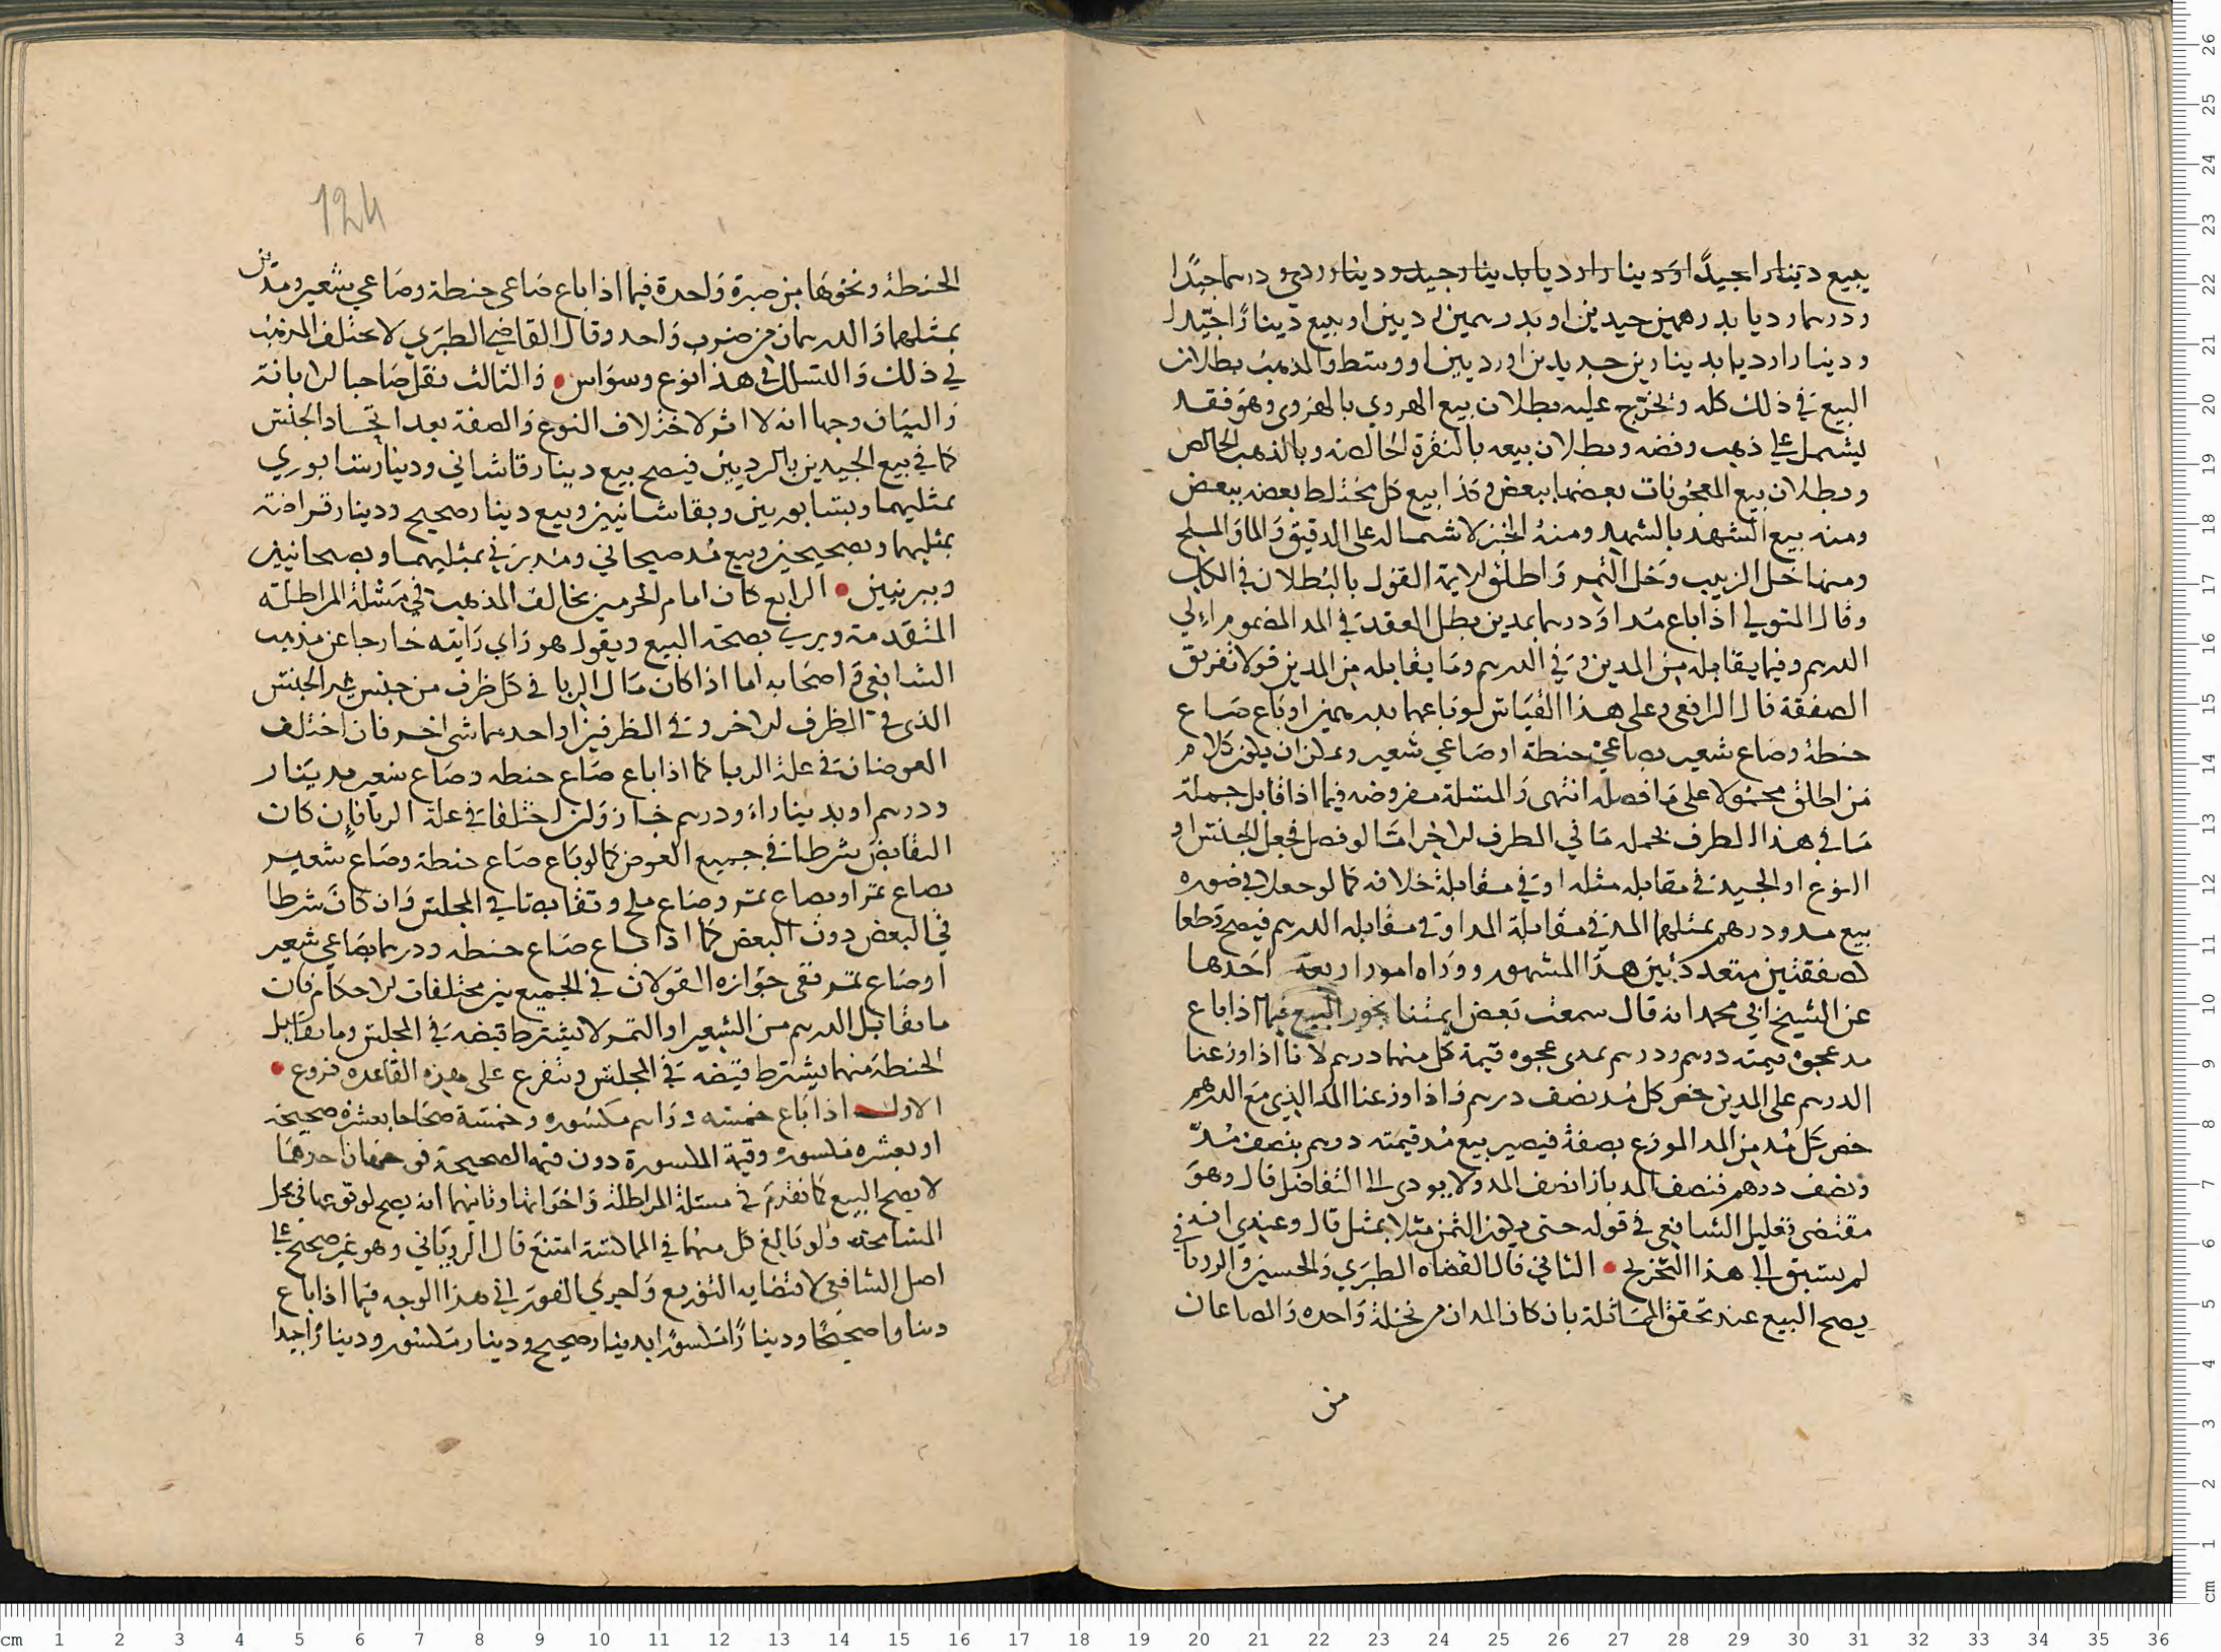 يبيع دينارا جيدًا او دينارا رديا بدينار جيد ودينار ردي ودرهما جيدًا
ودرهما رديا بدرهمين جيدين او بدرهمين رديين او يبيع دينارًا جيّدا
ودينارا رديا بدينارين جيدين او رديين او وسط والمذهب بطلان
البيع في ذلك كله وتخرج عليه بطلان بيع الهروي بالهروي وهو فقد
يشمل على ذهب وفضه وبطلان بيعه بالنقرة الخالصه وبالذهب الخالص
وبطلان بيع المعجونات بعضها ببعض وكذا بيع كل مختلط بعضه ببعض
ومنه بيع الشهد بالشهد ومنهُ الخبز لاشتماله على الدقيق والما والملح
ومنها خل الزبيب وخل التمر واطلق الايمة القول بالبُطلان في الكل
وقال المتولي اذا باع مُدا ودرهما بمدين بطل العقد في المد المضموم الي
الدرهم وفيما يقابله من المدين وفي الدرهم وما يقابله من المدين قولا تفريق
الصفقة قال الرافعي وعلى هذا القياس لو باعهما بدرهمين او باع صاع
حنطة وصاع شعير بصاعي حنطة او صاعي شعير ويمكن ان يكون كلام
من اطلق محمولا على ما فصله انتهى والمسلة مفروضه فيما اذا قابل جملة
ما في هذا الطرف بجملة ما في الطرف الاخر اما لو فصل فجعل الجنس او
النوع او الجيد في مقابله مثله او في مقابلة خلافه كما لو جعلا في صوره
بيع مد ودرهم بمثلهما المد في مقابلة المد او في مقابله الدرهم فيصح قطعا
كصفقتين متعددتين هذا المشهور ووراه امور اربعة احدها
عن الشيخ ابي محمد انه قال سمعت بعض ايمتنا يجوز البيع فيما اذا باع
مد عجوة قيمته درهم ودرهم بمدى عجوه قيمة كل منهما درهم لانا اذا وزعنا
الدرهم على المدين خص كل مُد نصف درهم واذا وزعنا المد الذي مع الدرهم
خص كل مُد من المد الموزع نصفهُ فيصير بيع مُد قيمته درهم بنصف مُدّ
ونصف درهم فنصف المد بازا نصف المد ولا يودى الى التفاضل قال وهو
مقتضى تعليل الشافعي في قوله حتى يكون الثمن مثلا بمثل قال وعندي انه
لم يستبق الى هذا التخريج • الثاني قال القضاه الطبري والحسين والروياني
يصح البيع عند تحقق المماثلة بان كان المدان من نخلة واحده والصاعان
من
124
الحنطة ونحوها من صبرة واحدة فيما اذا باع صاعي حنطة وصاعي شعير ومدين
بمثلهما والدرهمان من ضرب واحد وقال القاضي الطبري لا يختلف المذهب
في ذلك والتسلك في هذا نوع وسواس • والثالث نقل صاحبا الابانة
والبيان وجها انه لا اثر لاختلاف النوع والصفة بعد اتحاد الجنس
كما في بيع الجيدين بالرديين فيصح بيع دينار قاشاني ودينار سابوري
بمثليهما وبسابوريين وبقاشانيين وبيع دينار صحيح ودينار قراضة
بمثليهما وبصحيحين وبيع مُد صيحاني ومُد برني بمثليهما وبصيحانيين
وببرنيين • الرابع كان امام الحرمين يخالف المذهب في مسئلة المراطلة
المتقدمة ويرى بصحة البيع ويقول هو راي رايته خارجا عن مذهب
الشافعي واصحابه اما اذا كان مال الربا في كل ظرف من جنس غير الجنس
الذي في الطرف الاخر وفي الطرفين او احدهما شي اخر فان اختلف
العوضان في علة الربا كما اذا باع صاع حنطه وصاع شعير بدينار
ودرهم او بدينار او ودرهم جاز وان اختلفا في علة الربا فان كان
التقابض شرطا في جميع العوض كما لو باع صاع حنطة وصاع شعير
بصاع تمر او بصاع تمر وصاع ملح وتقابضا في المجلس وان كان شرطا
في البعض دون البعض كما اذا باع صاع حنطه ودرهما بصاعي شعير
او صاع تمر ففي جوازه القولان في الجميع بين مختلفات الاحكام فان
ما يقابل الدرهم من الشعير او التمر لا يشترط قبضه في المجلس وما يقابل
الحنطة منهما يشترط قبضه في المجلس وتتفرع على هذه القاعده فروع •
الاول اذا باع خمسه دراهم مكسوره وخمسة صحاحا بعشرة صحيحة
او بعشره مكسوره وقيمة المكسورة دون قيمة الصحيحة فوجهان احدهما
لا يصح البيع كما تقدم في مسئلة المراطلة واخواتها وثانيهما انه يصح لوقوعهما في محل
المسامحة ولو بالغ كل منهما في المماكسة امتنع قال الروياني وهو غير صحيح على
اصل الشافعي لاقتضايه التوزيع واجرى الفوراني هذا الوجه فيما اذا باع
دينارا صحيحًا ودينارًا مكسورًا بدينار صحيح ودينار مكسور ودينارًا جيدا